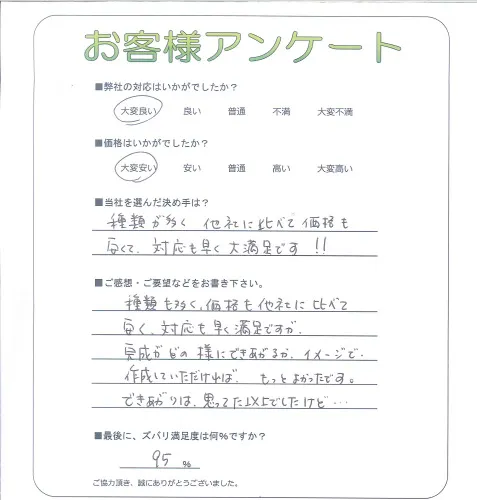 お客様アンケート
■弊社の対応はいかがでしたか?
大変良い 良い 普通 不満 大変不満
■価格はいかがでしたか?
大変安い 安い 普通 高い 大変高い
■当社を選んだ決め手は?
種類が多く 他社に比べて価格も
安くて、対応も早く大満足です!!
■ご感想・ご要望などをお書き下さい。
種類も多く、価格も他社に比べて
安く、対応も早く満足ですが、
完成がどの様にできあがるか、イメージで
作成していただければ、もっとよかったです。
できあがりは、思ってた以上でしたけど…
■最後に、ズバリ満足度は何%ですか?
95 %
ご協力頂き、誠にありがとうございました。